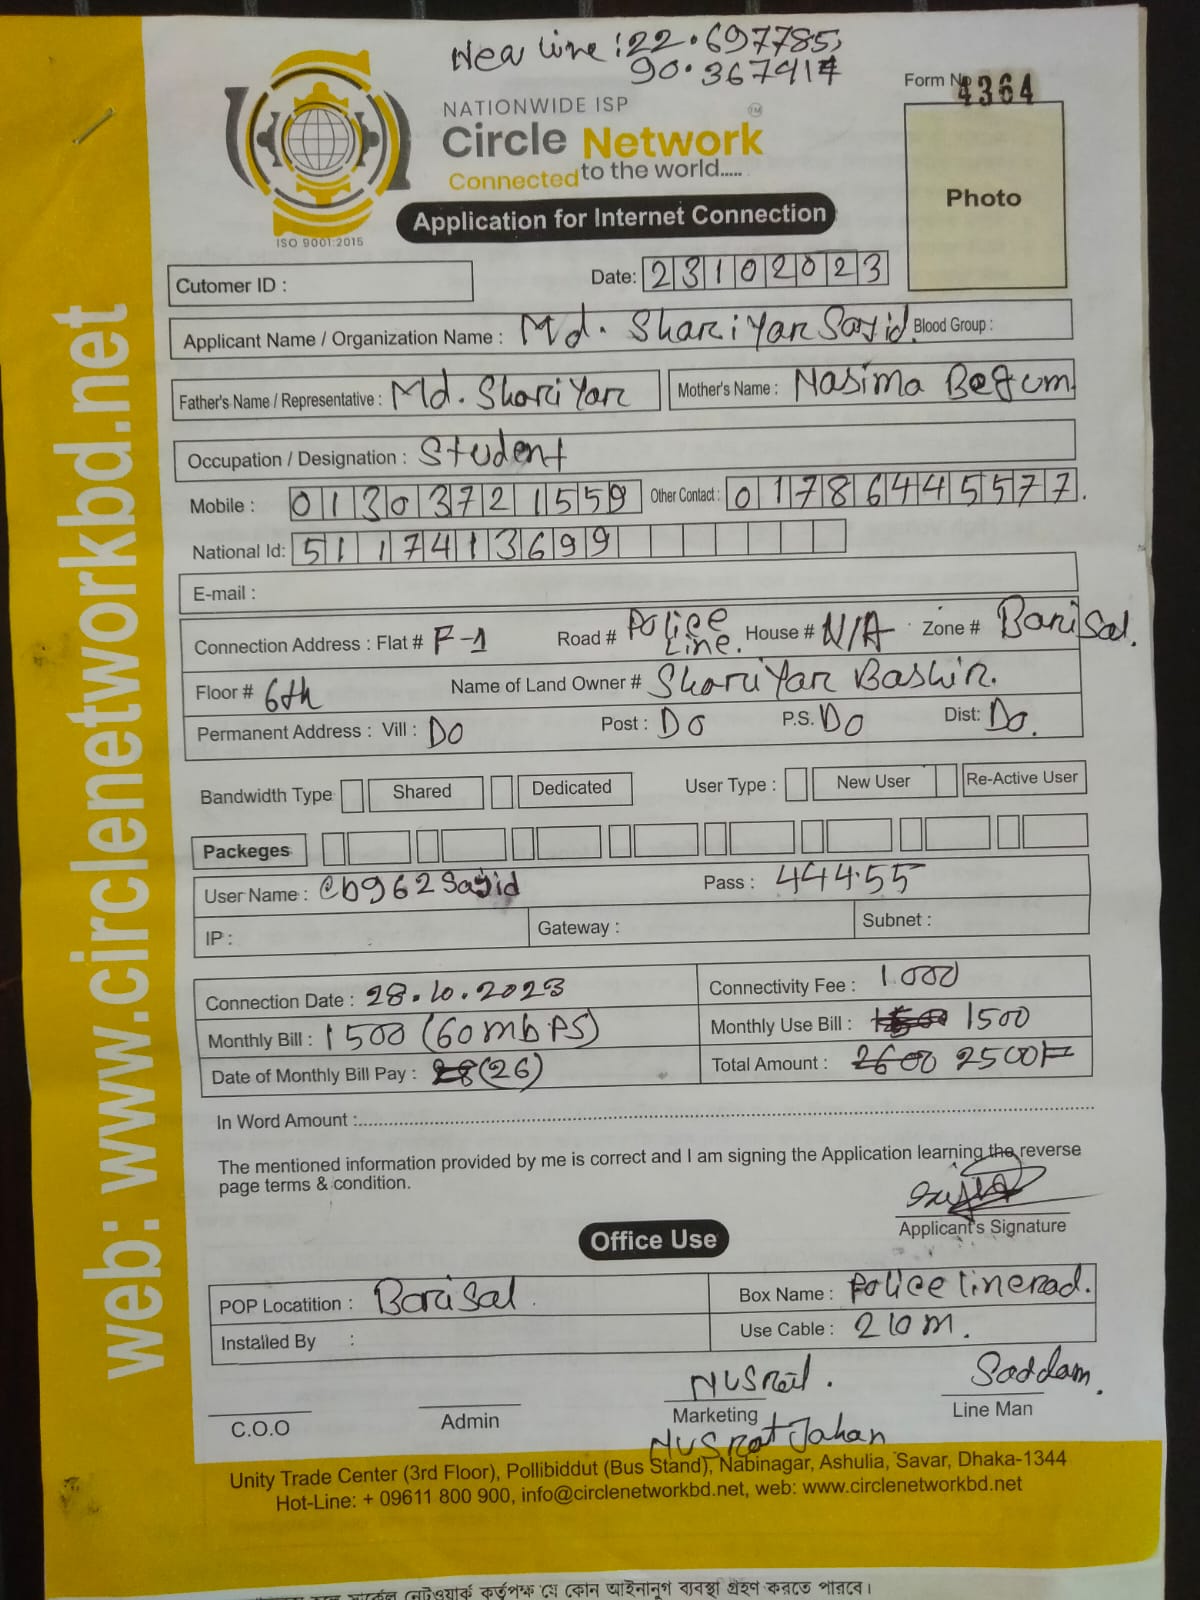 New line : 22.697785,
90.367414
Form No 4364
NATIONWIDE ISP
Circle Network
TM
Connected to the world.....
ISO 9001:2015
Application for Internet Connection
Photo
Cutomer ID :
Date: 23102023
Applicant Name / Organization Name : Md. Shariyar Sayid. Blood Group :
Father's Name / Representative : Md. Shariyar Mother's Name : Nasima Begum
Occupation / Designation : Student
Mobile : 01303721559 Other Contact : 01786445577.
National Id: 5117413699
E-mail :
Connection Address : Flat # F-1 Road # Police Line. House # N/A Zone # Barisal.
Floor # 6th Name of Land Owner # Shariyar Bashir.
Permanent Address : Vill : Do Post : Do P.S. Do Dist: Do.
Bandwidth Type Shared Dedicated User Type : New User Re-Active User
Packeges
User Name : cb962sayid Pass : 444.55
IP : Gateway : Subnet :
Connection Date : 28.10.2023 Connectivity Fee : 1.000
Monthly Bill : 1500 (60mbps) Monthly Use Bill : 1500
Date of Monthly Bill Pay : 28 (26) Total Amount : 2600 2500
In Word Amount :
The mentioned information provided by me is correct and I am signing the Application learning the reverse
page terms & condition.
Applicant's Signature
Office Use
POP Locatition : Barisal Box Name : Police line road.
Installed By : Use Cable : 210m.
Nusrat. Saddam.
C.O.O Admin Marketing Line Man
Nusrat Jahan
Unity Trade Center (3rd Floor), Pollibiddut (Bus Stand), Nabinagar, Ashulia, Savar, Dhaka-1344
Hot-Line: + 09611 800 900, info@circlenetworkbd.net, web: www.circlenetworkbd.net
web: www.circlenetworkbd.net
সার্কেল নেটওয়ার্ক কর্তৃপক্ষ যে কোন আইনানুগ ব্যবস্থা গ্রহণ করতে পারবে।